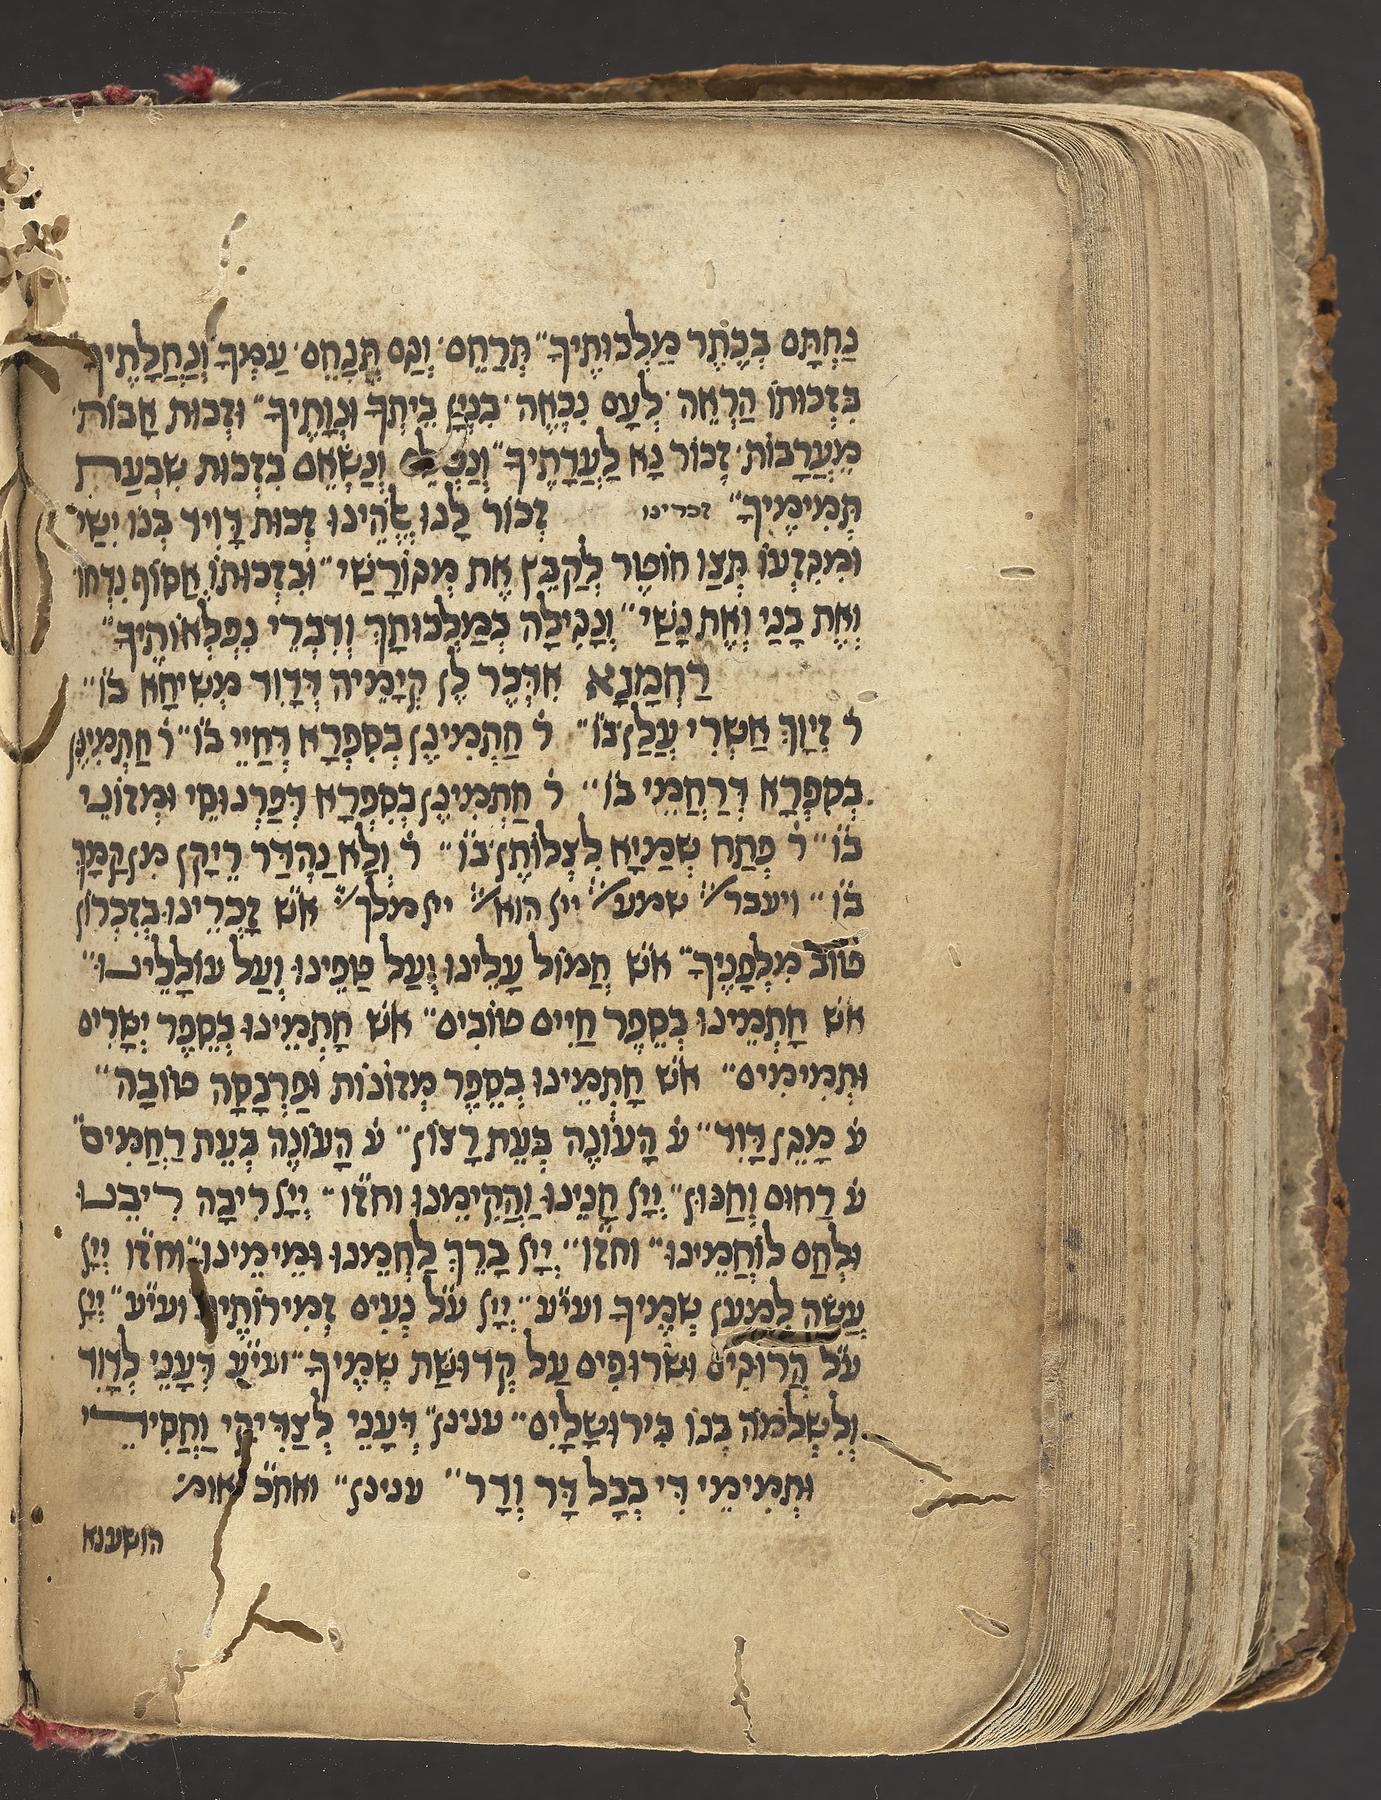 נַחְתָּם בְּכֶתֶר מַלְכוּתֶיךָ״ תְּרַחֵם׳ וְגַם תְּנַחֵם׳ עַמְּךָ וְנַחֲלָתֶיךָ״
בִּזְכוּתוֹ הַרְאֵה׳ לְעָם נִכְאֶה׳ בִּנְיַן בֵּיתְךָ וּנְוָתֶיךָ״ וּזְכוּת אָבוֹת׳
מֵעֲרָבוֹת׳ זְכוֹר נָא לַעֲדָתֶיךָ״ וְנַשְּׂאֵם בִּזְכוּת שִׁבְעַת
תְּמִימֶיךָ״ זכרינו זְכוֹר לָנוּ אֱלֹהֵינוּ זְכוּת דָּוִיד בְּנוֹ יִשַׁי
וּמִגִּזְעוֹ תְּצַו חוֹטֶר לְקַבֵּץ אֶת מְגוֹרָשַׁי״ וּבִזְכוּתוֹ אֱסוֹף נִדְּחוֹ
וְאֶת בָּנַי וְאֶת נָשַׁי״ וְנָגִילָה בְּמַלְכוּתָךְ וְדִבְרֵי נִפְלְאוֹתֶיךָ״
רַחְמָנָא אִדְּכַר לָן קְיָמֵיהּ דְּדָוִד מְשִׁיחָא בוֹ״
ר̇ זְיָוָךְ אַשְׁרִי עֲלַן בוֹ״ ר̇ חַתְמִינָן בְּסִפְרָא דְּחַיֵּי בוֹ״ ר̇ חַתְמִינָן
בְּסִפְרָא דְּרַחֲמֵי בוֹ״ ר̇ חַתְמִינָן בְּסִפְרָא דְּפַרְנוּסֵי וּמְזוֹנֵי
בוֹ״ ר̇ פְּתַח שְׁמַיָּא לִצְלוֹתָן בוֹ״ ר̇ וְלָא נַהְדַּר רֵיקָן מִן קַמָּךְ
בוֹ״ ויעבר״ שמע״ יין הוא״ ין מלך״ אׁשׁ זָכְרֵינוּ בְּזִכְרוֹן
טוֹב מִלְּפָנֶיךָ״ אׁשׁ חֲמוֹל עָלֵינוּ וְעַל טַפֵּינוּ וְעַל עוֹלָלֵינוּ״
אׁשׁ חָתְמֵינוּ בְּסֵפֶר חַיִּים טוֹבִים״ אׁשׁ חָתְמֵינוּ בְּסֵפֶר יְשָׁרִים
וּתְמִימִים״ אׁשׁ חָתְמֵינוּ בְּסֵפֶר מְזוֹנוֹת וּפַרְנָסָה טוֹבָה״
ע̇ מָגֵן דָּוִד״ ע̇ הָעוֹנֶה בְּעֵת רָצוֹן״ ע̇ הָעוֹנֶה בְּעֵת רַחֲמִים״
ע̇ רַחוּם וְחַנּוּן״ יְיָן חָנֵינוּ וַהֲקִימֵנוּ וחׄזׄו״ יְיָן רִיבָה רִיבֵנוּ
וּלְחַם לוֹחֲמֵינוּ״ וחׄזׄו״ יְיָן בָּרֵךְ לַחְמֵנוּ וּמֵימֵינוּ״ וחׄזׄו יְיָן
עֲשֵׂה לְמַעַן שְׁמֶיךָ ועׄיׄע״ יְיָן עׄל נְעִים זְמִירוֹתֶיךָ ועׄיׄע״ יְיָן
עׄל הֲרוּגִים וּשְׂרוּפִים עַל קְדוּשַׁת שְׁמֶיךָ״ ועׄיׄע דְּעָנֵי לְדָוִד
וְלִשְׁלֹמֹה בְּנוֹ בִּירוּשָׁלַיִם״ ענינן״ דְּעָנֵי לְצַדִּיקֵי וַחֲסִידֵי
וּתְמִימֵי דִּי בְּכָל דָּר וְדָר״ ענינן״ ואחׄכׄ יאומ׳
הושענא